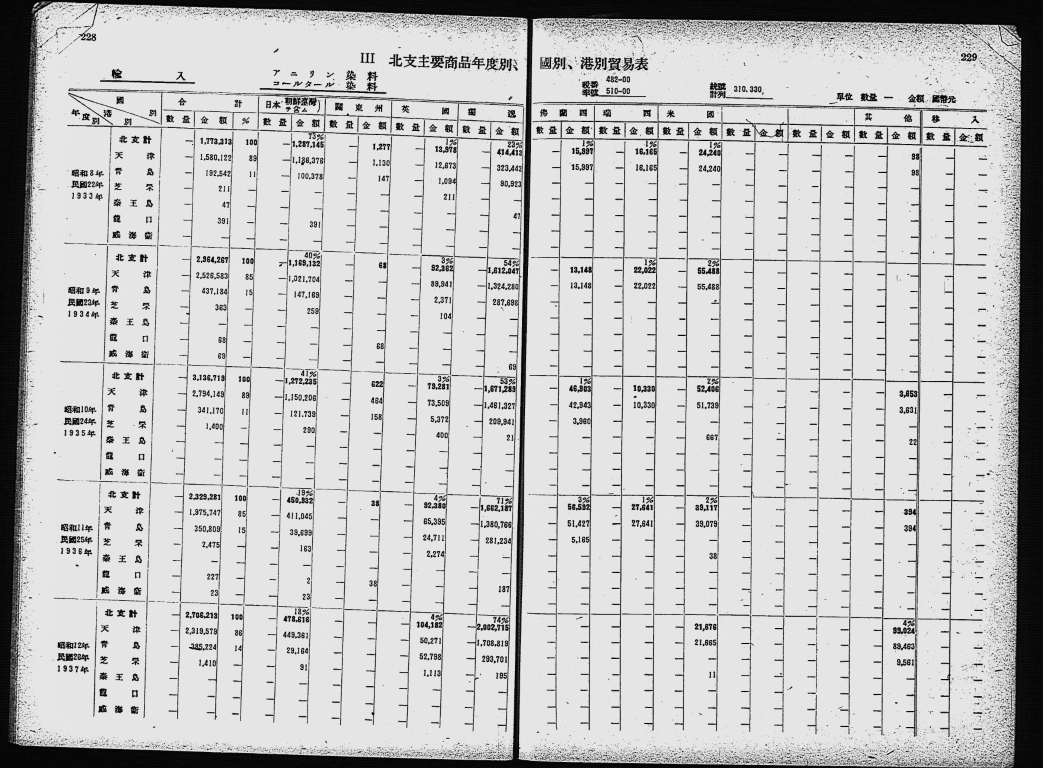 228
229
III 北支主要商品年度別、國別、港別貿易表
輸 入
アニリン 染料
コールタール 染料
税番 482-00
510-00
310.330.
單位 數量 — 金額 國幣元
國別 合計 日本 朝鮮臺灣 關東州 英國 獨逸 佛蘭西 瑞西 米國 其他 移入
年度別 港別 數量 金額 % 數量 金額 數量 金額 數量 金額 數量 金額 數量 金額 數量 金額 數量 金額 數量 金額 數量 金額 數量 金額 數量 金額
昭和8年
民國22年
1933年
73% 1% 23% 1% 1% 1%
北支計 — 1,773,313 100 — 1,287,145 — 1,277 — 13,978 — 414,413 — 15,997 — 16,165 — 24,240 — 98
天津 — 1,580,122 89 — 1,186,376 — 1,130 — 12,673 — 323,443 — 15,997 — 16,165 — 24,240 — 98
青島 — 192,542 11 — 100,378 — 147 — 1,094 — 90,923
芝罘 — 211 — 211
秦王島 — 47 — 47
龍口 — 391 — 391
威海衛
昭和9年
民國23年
1934年
40% 3% 54% 1% 2%
北支計 — 2,964,267 100 — 1,169,132 — 68 — 92,362 — 1,612,047 — 13,148 — 22,022 — 55,488
天津 — 2,526,583 85 — 1,021,704 — 89,941 — 1,324,280 — 13,148 — 22,022 — 55,488
青島 — 437,184 15 — 147,169 — 2,371 — 287,698
芝罘 — 363 — 259 — 104
秦王島
龍口 — 68 — 68
威海衛 — 69 — 69
昭和10年
民國24年
1935年
41% 3% 53% 1% 2%
北支計 — 3,136,719 100 — 1,272,235 — 622 — 79,281 — 1,671,289 — 46,903 — 10,330 — 52,406 — 3,653
天津 — 2,794,149 89 — 1,150,206 — 464 — 73,509 — 1,461,327 — 42,943 — 10,330 — 51,739 — 3,631
青島 — 341,170 11 — 121,739 — 158 — 5,372 — 209,941 — 3,960
芝罘 — 1,400 — 290 — 400 — 21 — 667 — 22
秦王島
龍口
威海衛
昭和11年
民國25年
1936年
19% 4% 71% 3% 1% 2%
北支計 — 2,329,281 100 — 450,932 — 38 — 92,380 — 1,662,187 — 56,592 — 27,641 — 39,117 — 394
天津 — 1,975,747 85 — 411,045 — 65,395 — 1,380,766 — 51,427 — 27,641 — 39,079 — 394
青島 — 350,809 15 — 39,699 — 24,711 — 281,234 — 5,165
芝罘 — 2,475 — 163 — 2,274 — 38
秦王島
龍口 — 227 — 2 — 38 — 187
威海衛 — 23 — 23
昭和12年
民國26年
1937年
18% 4% 74% 4%
北支計 — 2,706,213 100 — 478,616 — 104,182 — 2,002,715 — 21,676 — 99,024
天津 — 2,319,579 86 — 449,361 — 50,271 — 1,708,819 — 21,665 — 89,463
青島 — 385,224 14 — 29,164 — 52,798 — 293,701 — 9,561
芝罘 — 1,410 — 91 — 1,113 — 195 — 11
秦王島
龍口
威海衛